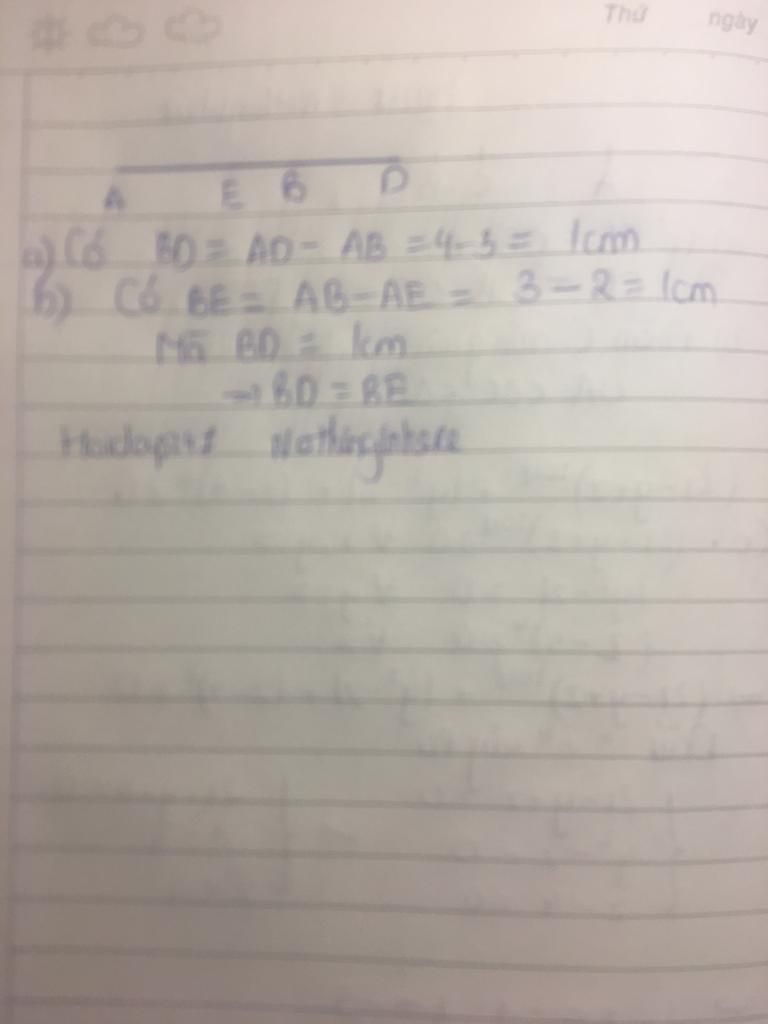 Thứ ngày
A E B D
a) Có BD = AD - AB = 4-3 = 1cm
b) Có BE = AB-AE = 3-2=1cm
Mà BD = 1cm
→ BD = BE
Hoidap247 Nothinginhere